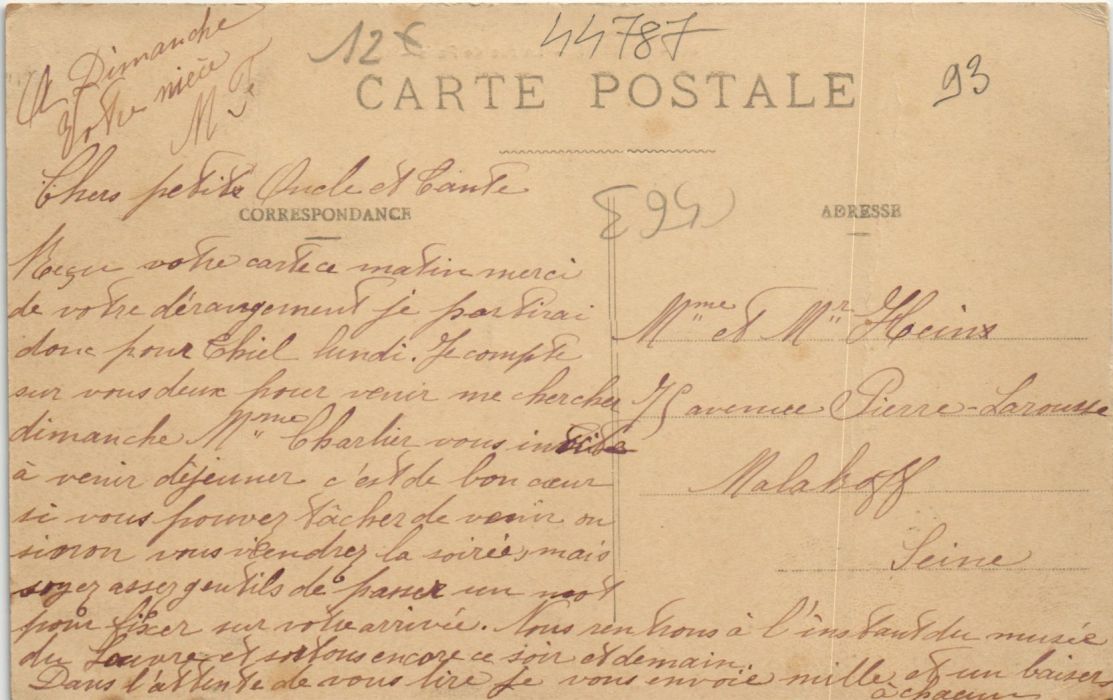 12 €
44787
93
A Dimanche
Votre nièce
CARTE POSTALE
Chers petits Oncle et Tante
CORRESPONDANCE
Reçu votre carte ce matin merci
de votre dérangement je partirai
donc pour Thiel lundi. Je compte
sur vous deux pour venir me chercher
dimanche Mme Charlier vous invite
à venir déjeuner c'est de bon cœur
si vous pouvez tâcher de venir ou
sinon vous viendrez la soirée, mais
soyez assez gentils de passer un mot
pour fixer sur votre arrivée. Nous rentrons à l'instant du musée
du Louvre et sortons encore ce soir et demain.
Dans l'attente de vous lire je vous envoie mille et un baisers
à chacun
ADRESSE
Mme et Mr Heins
75 avenue Pierre-Larousse
Malakoff
Seine